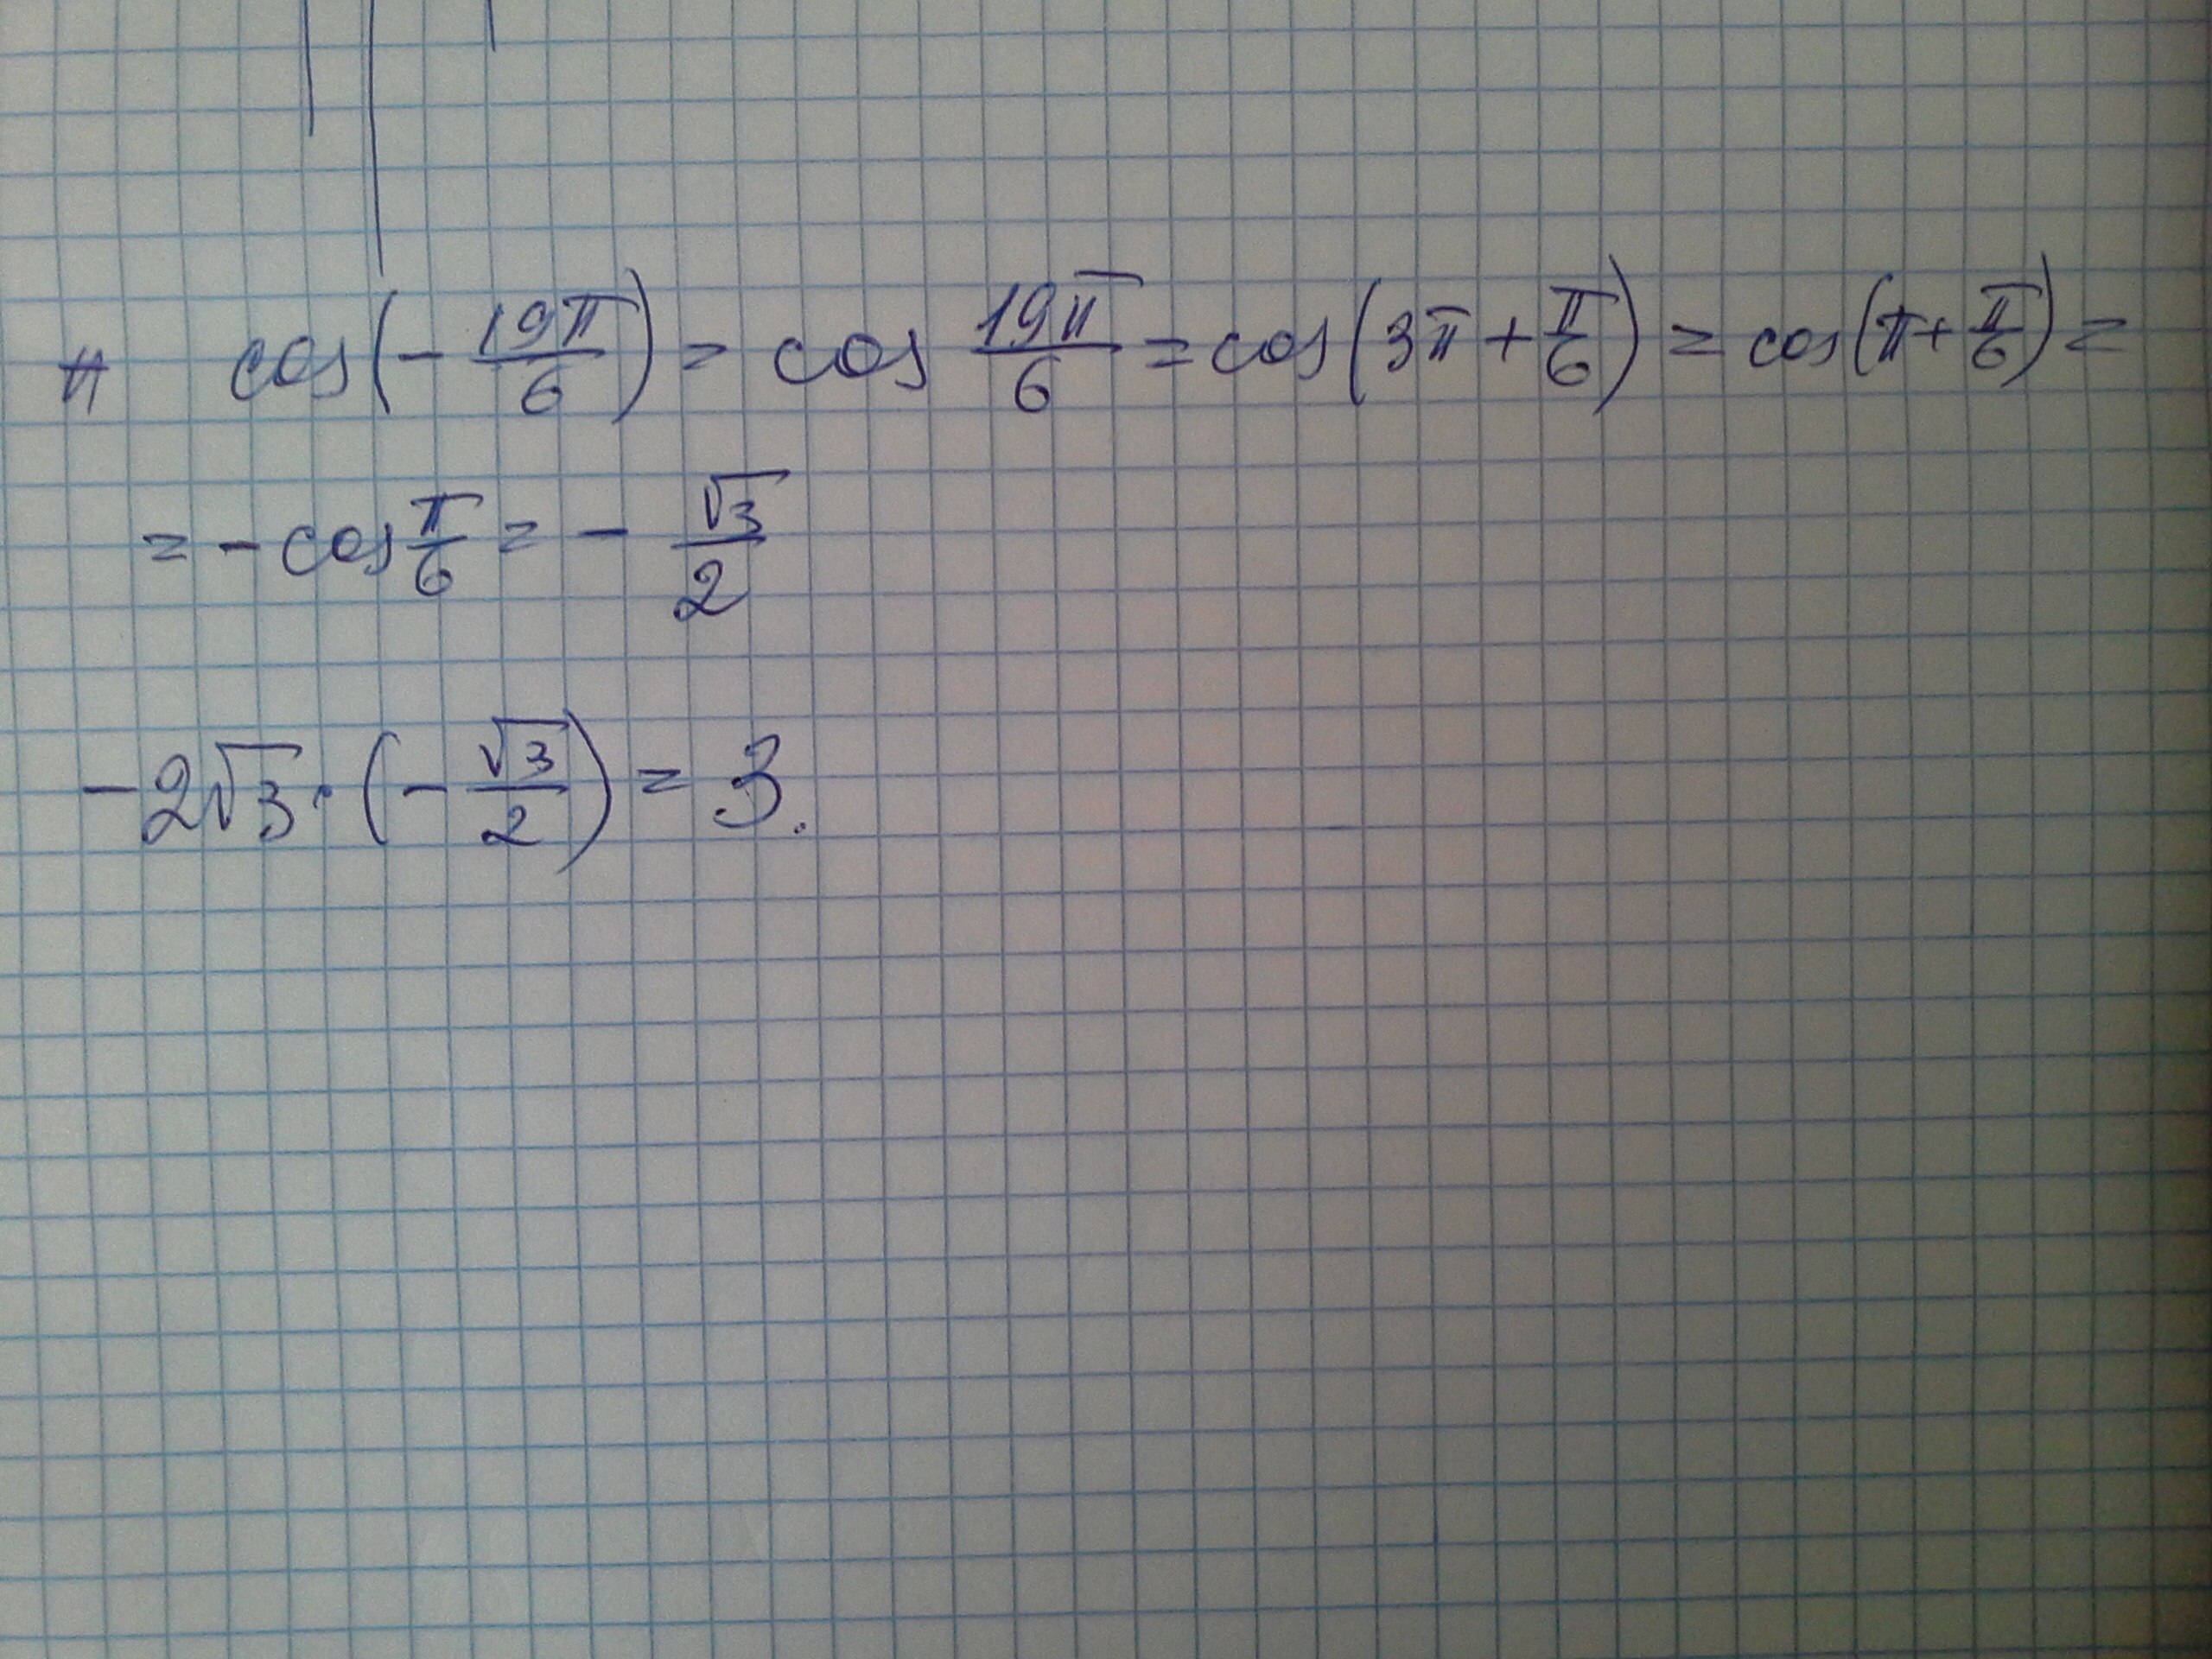 # cos(-19π/6) = cos 19π/6 = cos(3π + π/6) = cos(π + π/6) =
= - cos π/6 = - √3/2
-2√3 · (-√3/2) = 3.